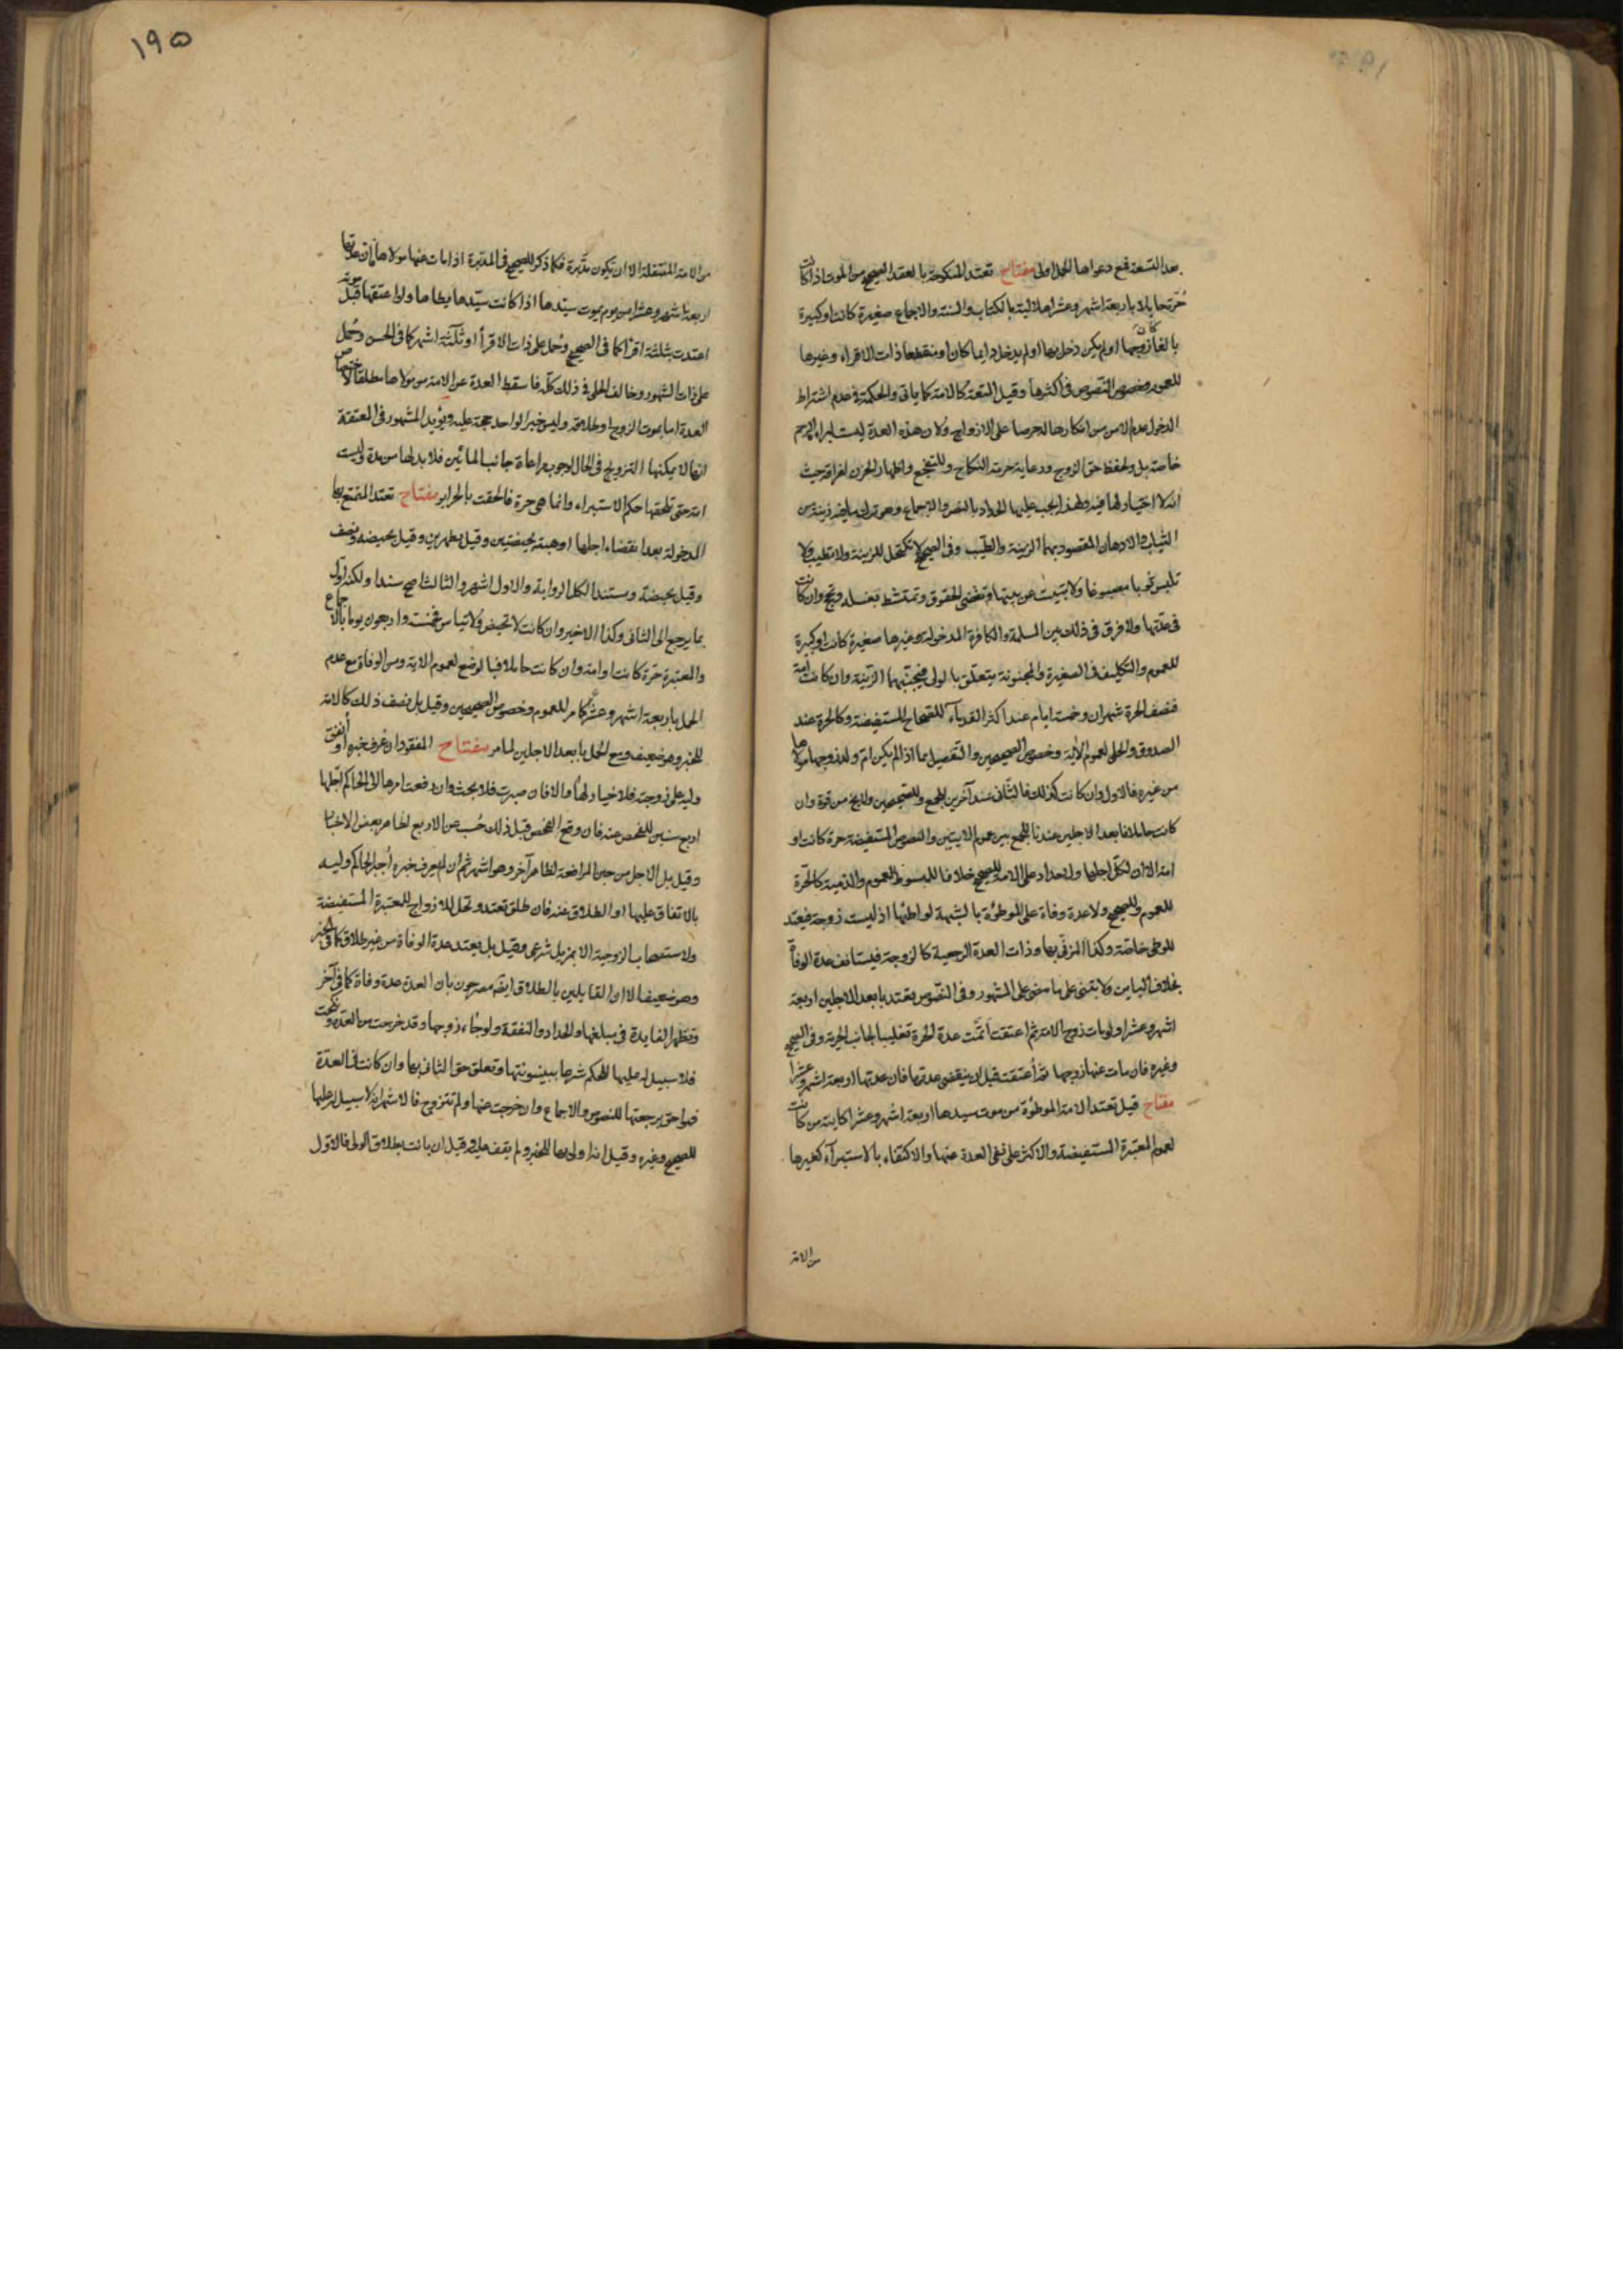 بعد التسعة فمع دعواها الحمل اولى مفتاح تعتد المنكوحة بالعقد الصحيح من الموت اذا كانت
حُرّة حايلا باربعة اشهر وعشرا هلالية بالكتاب والسنة والاجماع صغيرة كانت او كبيرة
بالغا كان زوجها او لم يكن دخل بها او لم يدخل دايما كان او منقطعا ذات الاقراء وغيرها
للعموم وخصوص النصوص فى اكثرها وقيل المتعة كالامة كما ياتى والحكمة فى عدم اشتراط
الدخول عدم الامن من انكارها له حرصا على الازواج ولان هذه العدة ليست لبراءة الرحم
خاصة بل ولحفظ حق الزوج ورعاية حرمة النكاح وللتفجع واظهار الحزن لفراقه حيث
انه لا اختيار لها فيه ولهذا يجب عليها الحداد بالنصّ والاجماع وهو ترك ما فيه زينة من
الثياب والادهان المقصود بهما الزينة والطيب وفى الصحيح لا تكتحل للزينة ولا تطيب ولا
تلبس ثوبا مصبوغا ولا تبيت عن بيتها وتقضى الحقوق وتمتشط بغسله وتحج وان كانت
فى عدّتها ولا فرق فى ذلك بين المسلمة والكافرة المدخولة وغيرها صغيرة كانت او كبيرة
للعموم والتكليف فى الصغيرة والمجنونة يتعلّق بالولى فيجنّبهما الزينة وان كانت امة
فنصف الحرة شهران وخمسة ايام عند اكثر القدماء للصحاح المستفيضة وكالحرة عند
الصدوق والحلى لعموم الآية وخصوص الصحيحين والتفصيل بما اذا لم يكن ام ولد زوجها مولاها
من غيره فالاول وان كانت كذلك فالثانى عند آخرين للجمع وللصحيحين ولا يخ من قوة وان
كانت حاملا فابعد الاجلين عندنا للجمع بين عموم الايتين والنصوص المستفيضة حرة كانت او
امة الا ان لكلّ اجلها ولا حداد على الامة للصحيح خلافا للمبسوط للعموم والذمية كالحرّة
للعموم وللصحيح ولا عدة وفاة على الموطوُة بالشبهة لواطئها اذ ليست زوجة فيعتد
للوطى خاصّة وكذا المزنى بها وذات العدة الرجعية كالزوجة فيستانف عدة الوفاة
بخلاف الباين ولا تبنى على ما مضى على المشهور وفى النصّوص تعتد بابعد الاجلين اربعة
اشهر وعشرا ولو مات زوج الامة ثم اعتقت اتمّت عدة الحرة تغليبا لجانب الحرية وفى الصحيح
وغيره فان مات عنها زوجها ثم اُعتقت قبل ان ينقضى عدتها فان عدتها اربعة اشهر وعشرا
مفتاح قيل تعتد الامة الموطوُة من موت سيدها اربعة اشهر وعشرا كاينة من كانت
لعموم المعتبرة المستفيضة والاكثر على نفى العدة عنها والاكتفاء بالاستبرآء كغيرها
من الامة
١٩٥
من الامة المنتقلة الا ان تكون مدّبرة فكما ذكر للصحيح فى المدبرة اذا مات عنها مولاها ان عدتها
اربعة اشهر وعشرا من يوم يموت سيّدها اذا كانت سيّدها يطاها ولو اعتقها قبل موته
اعتدت بثلثة اقراء كما فى الصحيح وحُمل على ذات الاقرأ او ثلثة اشهر كما فى الحسن وحُمل
على ذات الشهور وخالف الحلى فى ذلك كلّه فاسقط العدة عن الامة من مولاها مطلقا لاختصاص
العدة اما بموت الزوج او طلاقه وليس خبر الواحد حجة عليه ويُؤيد المشهور فى المعتقة
انها لا يمكنها التزويج فى الحال لوجوب مراعاة جانب المائين فلا بد لها من مدة وليست
امة حتى تلحقها حكم الاستبراء وانما هى حرة فالحقت بالحراير مفتاح تعتد المتمتع بها
المدخولة بعد انقضاء اجلها او هبته بحيضتين وقيل بطهرين وقيل بحيضة ونصف
وقيل بحيضة ومستند الكل الرواية والاول اشهر والثالث اصح سندا ولكنه اوّل
بما يرجع الى الثانى وكذا الاخير وان كانت لا تحيض ولا تياس فخمسة واربعون يوما بالاجماع
والمعتبرة حرّة كانت او امة وان كانت حاملا فبالوضع لعموم الاية ومن الوفاة مع عدم
الحمل باربعة اشهر وعشر كما مر للعموم وخصوص الصحيحين وقيل بل نصف ذلك كالامة
للخبر وهو ضعيف ومع الحمل بابعد الاجلين لما مر مفتاح المفقود ان عُرف خبره او اُنفق
وليه على زوجته فلا خيار لها والا فان صبرت فلا بحث وان رفعت امرها الى الحاكم اجّلها
اربع سنين للفحص عنه فان وقع الفحص قبل ذلك حُسب من الاربع لظاهر بعض الاخبار
وقيل بل الاجل من حين المرافعة لظاهر آخر وهو اشهر ثم ان لم يعرف خبره اُجبر الحاكم وليه
بالاتفاق عليها او الطلاق عنه فان طلق تعتد وتحل للازواج للمعتبرة المستفيضة
ولاستصحاب الزوجية الا بمزيل شرعى وقيل بل يعتد عدة الوفاة من غير طلاق كما فى الخبر
وهو ضعيف الا ان القايلين بالطلاق ايضا مصرحون بان العدة عدة وفاة كما فى آخر
وتظهر الفايدة فى مبلغها والحداد والنفقة ولو جاء زوجها وقد خرجت من العدة ونكحت
فلا سبيل له عليها للحكم شرعا ببينونتها وتعلق حق الثانى بها وان كانت فى العدّة
فهو احق برجعتها للنصوص والاجماع وان خرجت عنها ولم تتزوج فالاشهر انه لا سبيل له عليها
للصحيح وغيره وقيل انه اولى بها للخبر ولم يقف عليه وقيل ان بانت بطلاق الولى فالاول